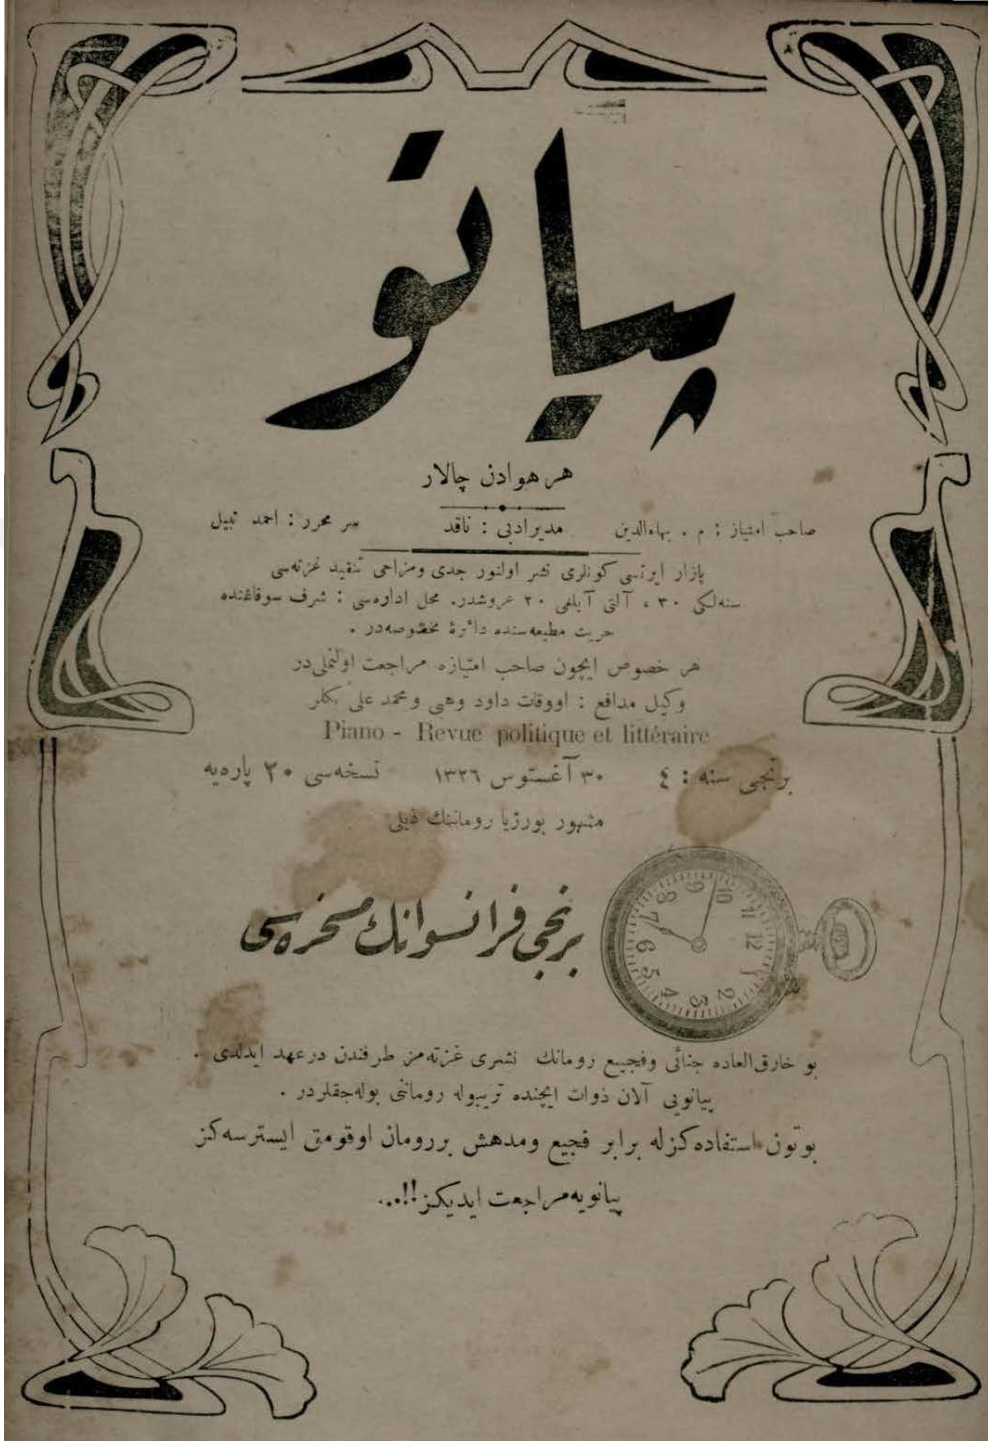 پیانو
هر هوادن چالار
صاحب امتیاز : م . بهاءالدین مدیر ادبی : ناقد سر محرر : احمد نبیل
پازار ایرتسی كونلری نشر اولنور جدی ومزاحی تنقید غزته‌سی
سنه‌لكی ۳۰ ، آلتی آیلغی ۲۰ غروشدر. محل اداره‌سی : شرف سوقاغنده
حریت مطبعه‌سنده دائرهٔ مخصوصه‌در .
هر خصوص ایچون صاحب امتیازه مراجعت اولنملی‌در
وكیل مدافع : اووقات داود وهبی ومحمد علی بكلر
Piano - Revue politique et littéraire
برنجی سنه : ٤ ۳۰ آغستوس ۱۳۲٦ نسخه‌سی ۲۰ پاره‌یه
مشهور بورژیا روماننك
برنجی فرانسوانك مسخره‌سی
1 2 3 4 5 6 7 8 9 10 11 12
بو خارق‌العاده جنائی وفجیع رومانك نشری غزته‌مز طرفندن درعهد ایدلدی .
پیانویی آلان ذوات ایچنده تریبوله روماننی بوله‌جقلردر .
بوتون استفاده‌كزله برابر فجیع ومدهش بررومان اوقومق ایسترسه‌كز
پیانویه‌مراجعت ایدیكز!!...